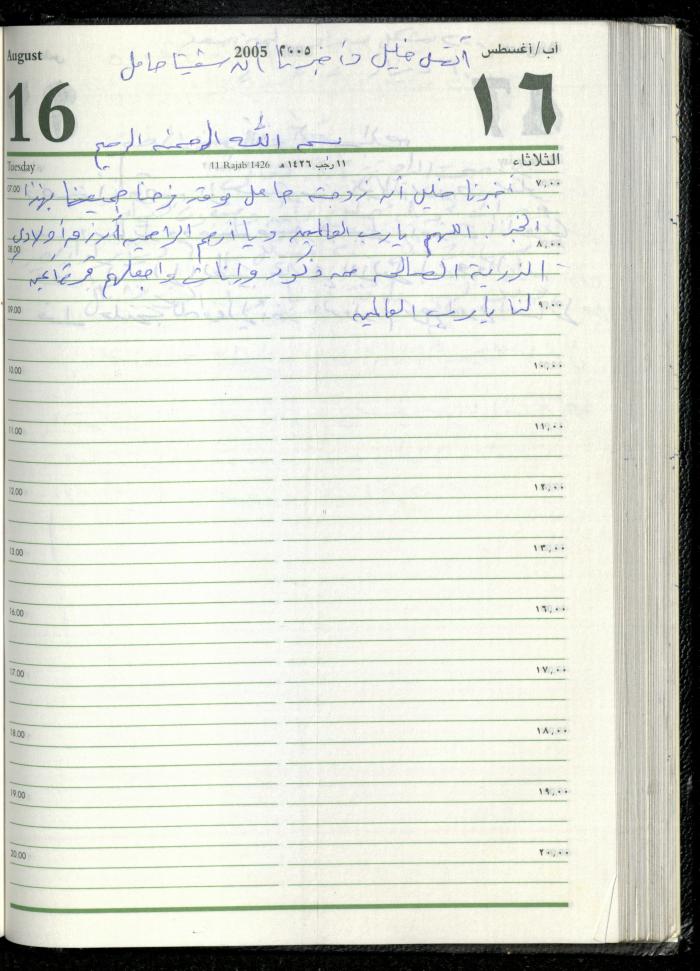 August
2005 ٢٠٠٥
آب/أغسطس
أتصل خليل وأخبرنا أن سفيتا حامل
16
١٦
بسم الله الرحمن الرحيم
Tuesday
11 Rajab 1426
١١ رجب ١٤٢٦ هـ
الثلاثاء
07.00 ٧,٠٠
أخبرنا خليل أن زوجته حامل وقد فرحنا جميعنا بهذا
الخبر . اللهم يارب العالمين ويا أرحم الراحمين أرزق أولادي
08.00 ٨,٠٠
الذرية الصالحة من ذكور وإناث واجعلهم قرة أعين
09.00 ٩,٠٠
لنا يارب العالمين
10.00 ١٠,٠٠
11.00 ١١,٠٠
12.00 ١٢,٠٠
13.00 ١٣,٠٠
16.00 ١٦,٠٠
17.00 ١٧,٠٠
18.00 ١٨,٠٠
19.00 ١٩,٠٠
20.00 ٢٠,٠٠